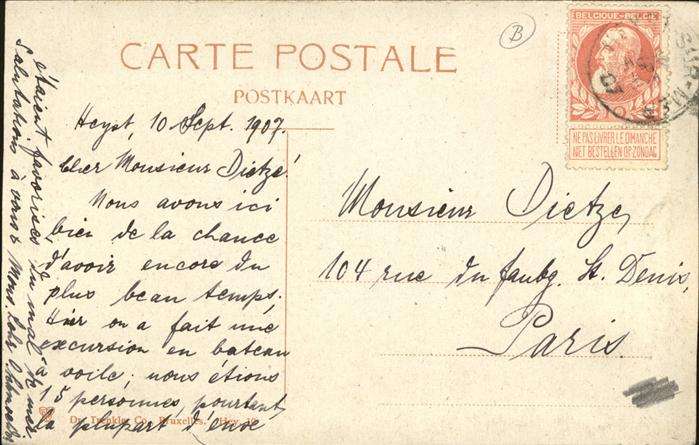 CARTE POSTALE
POSTKAART
B
BELGIQUE-BELGIË
NE PAS LIVRER LE DIMANCHE
NIET BESTELLEN OP ZONDAG
Heyst, 10 Sept. 1907.
Cher Monsieur Dietze!
Nous avons ici
bien de la chance
d'avoir encore du
plus beau temps.
Hier on a fait une
excursion en bateau
à voile; nous étions
15 personnes, pourtant
la plupart d'eux
étaient favorisés du mal de mer
Salutations à vous Mons.
Monsieur Dietze,
104 rue du faubg. St. Denis,
Paris
Dr. Trenkler Co., Bruxelles.